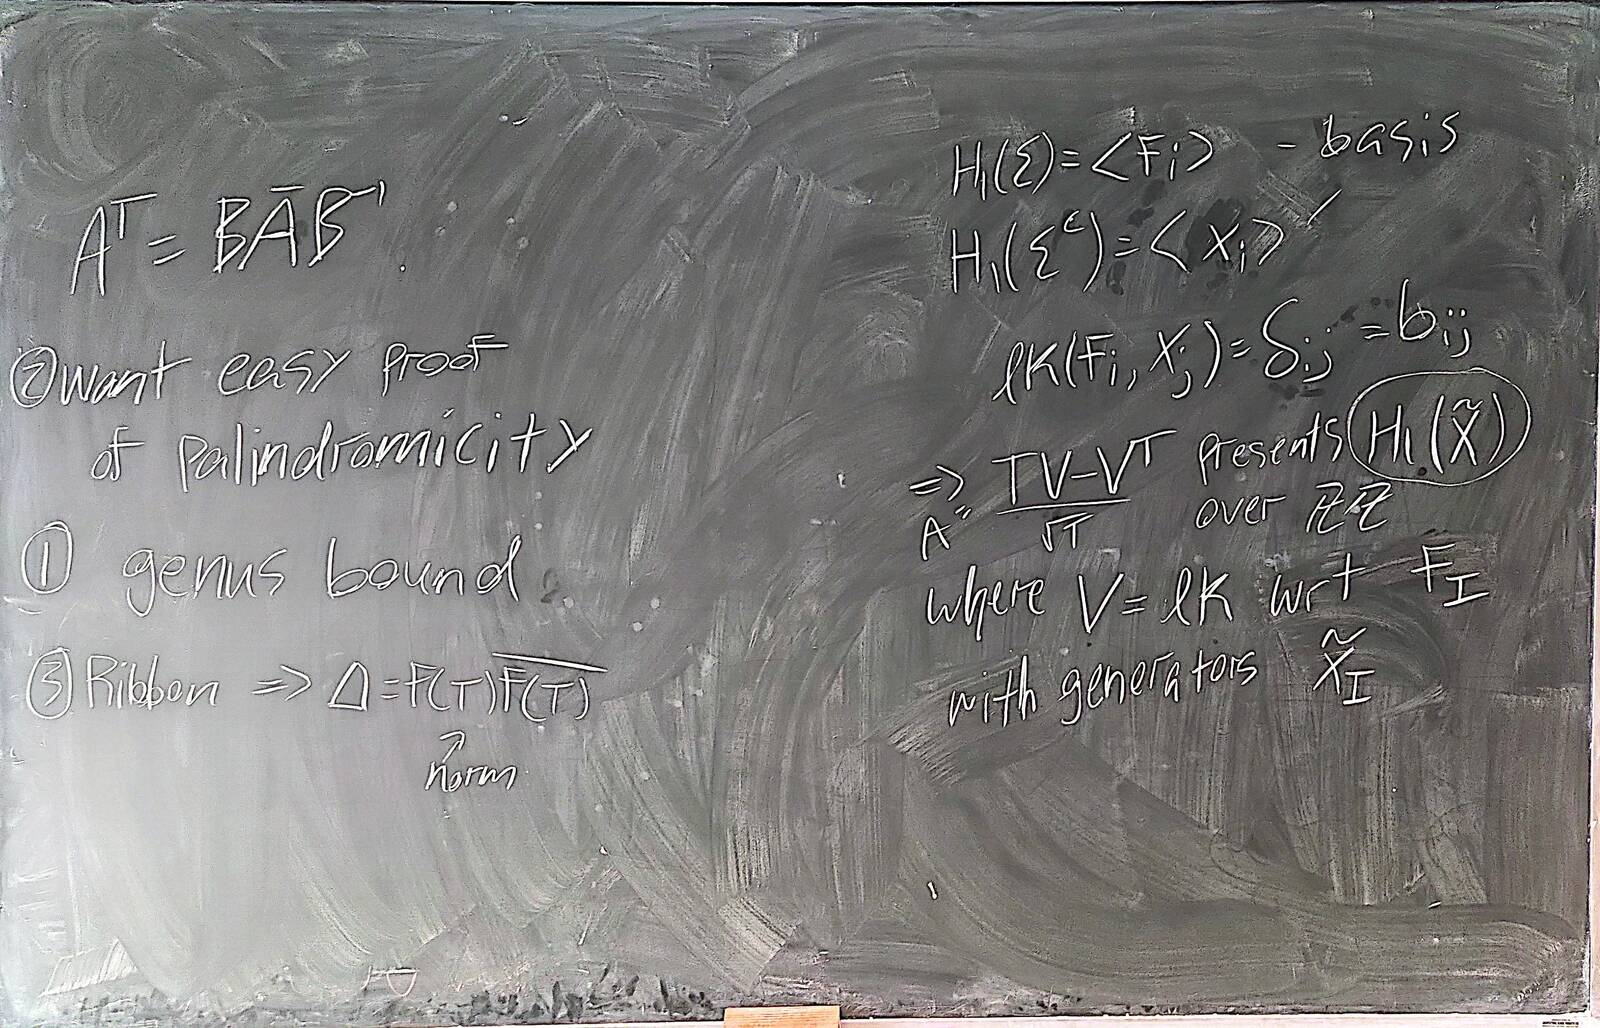 Aᵀ = BĀB⁻¹.
② Want easy proof
of palindromicity
① genus bound
③ Ribbon ⇒ Δ = F(T)F̅(̅T̅)̅
↗
norm
H₁(Σ) = <Fᵢ> - basis
H₁(Σᶜ) = <Xᵢ> ′
lk(Fᵢ, Xⱼ) = δᵢⱼ = bᵢⱼ
⇒ A = (TV-Vᵀ)/√T presents H₁(X̃)
over ℤℤ
where V = lk wrt F_I
with generators X̃_I